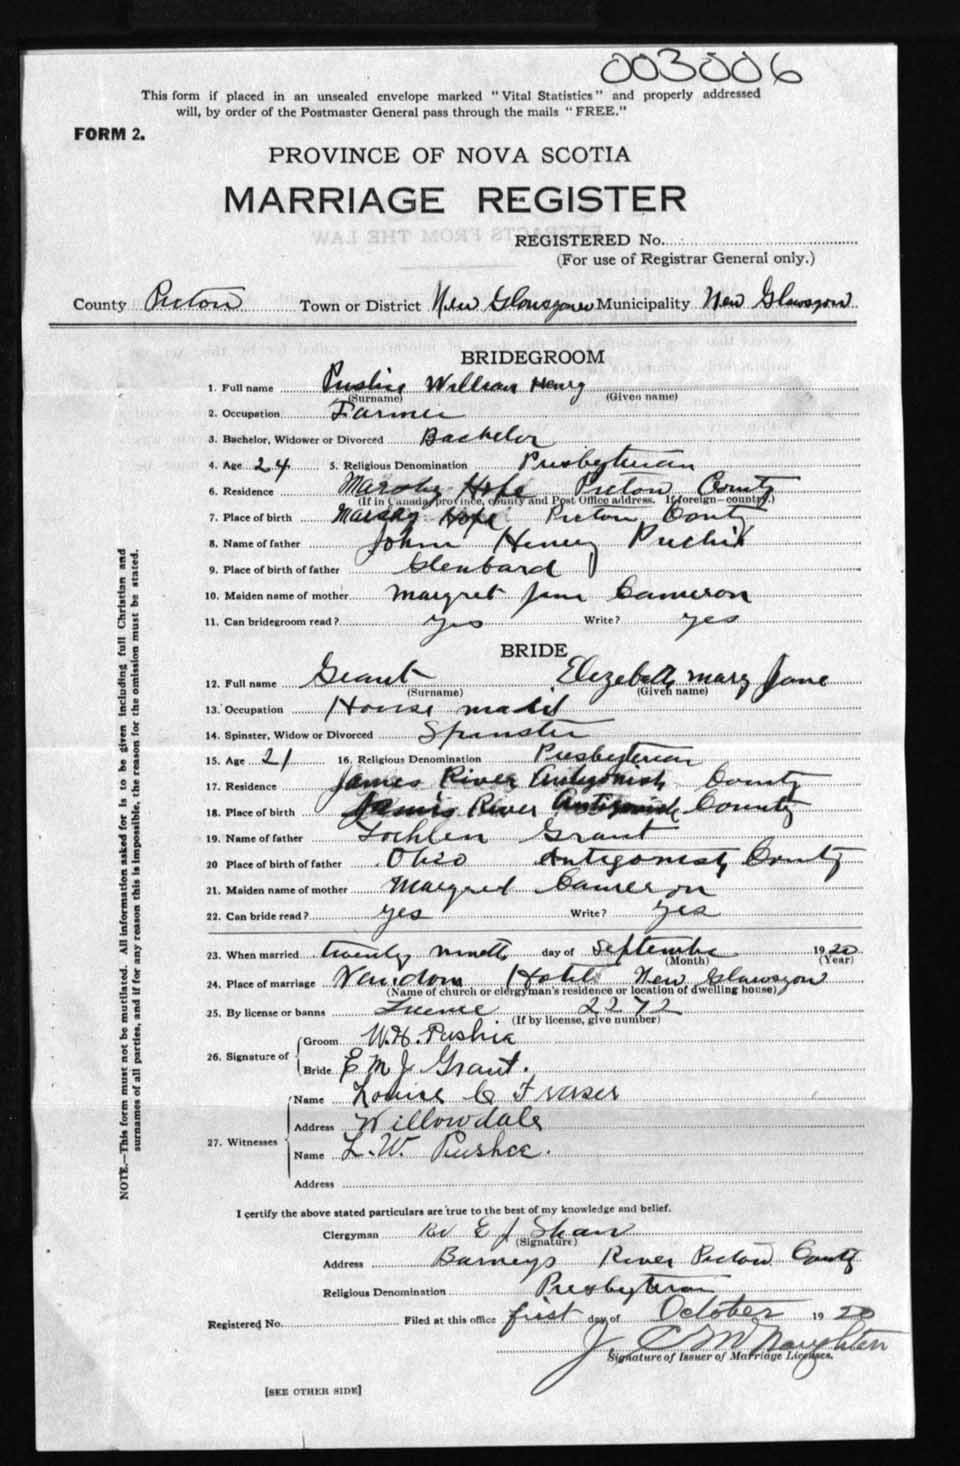 003006
This form if placed in an unsealed envelope marked "Vital Statistics" and properly addressed
will, by order of the Postmaster General pass through the mails "FREE."
FORM 2.
PROVINCE OF NOVA SCOTIA
MARRIAGE REGISTER
REGISTERED No.
(For use of Registrar General only.)
County Pictou Town or District New Glasgow Municipality New Glasgow
BRIDEGROOM
1. Full name William Henry
(Surname) (Given name)
2. Occupation Farmer
3. Bachelor, Widower or Divorced Bachelor
4. Age 24 5. Religious Denomination Presbyterian
6. Residence Marshy Hope Pictou County
(If in Canada, province, county and Post Office address. If foreign—country.)
7. Place of birth Marshy Hope Pictou County
8. Name of father John Henry
9. Place of birth of father Glenbard
10. Maiden name of mother Margret Jane Cameron
11. Can bridegroom read? yes Write? yes
BRIDE
12. Full name Grant Elizabeth Mary Jane
(Surname) (Given name)
13. Occupation House maid
14. Spinster, Widow or Divorced Spinster
15. Age 21 16. Religious Denomination Presbyterian
17. Residence James River Antigonish County
18. Place of birth James River Antigonish County
19. Name of father Lochlen Grant
20 Place of birth of father Ohio Antigonish County
21. Maiden name of mother Margred Cameron
22. Can bride read? yes Write? yes
23. When married twenty nineth day of Septembe 1920
(Month) (Year)
24. Place of marriage Vendom Hotel New Glawsgow
(Name of church or clergyman's residence or location of dwelling house)
25. By license or banns License 2272
(If by license, give number)
26. Signature of Groom W. H. Pushie
Bride E M J Grant.
27. Witnesses Name Louise C Fraser
Address Willowdale
Name L. W. Pushee.
Address
I certify the above stated particulars are true to the best of my knowledge and belief.
Clergyman Rev E J Shaw
(Signature)
Address Barneys River Pictou County
Religious Denomination Presbyterian
Registered No. Filed at this office first day of October 1920
J. C. McNaughten
Signature of Issuer of Marriage Licenses.
[SEE OTHER SIDE]
NOTE.—This form must not be mutilated. All information asked for is to be given including full Christian and
surnames of all parties, and if for any reason this is impossible, the reason for the omission must be stated.